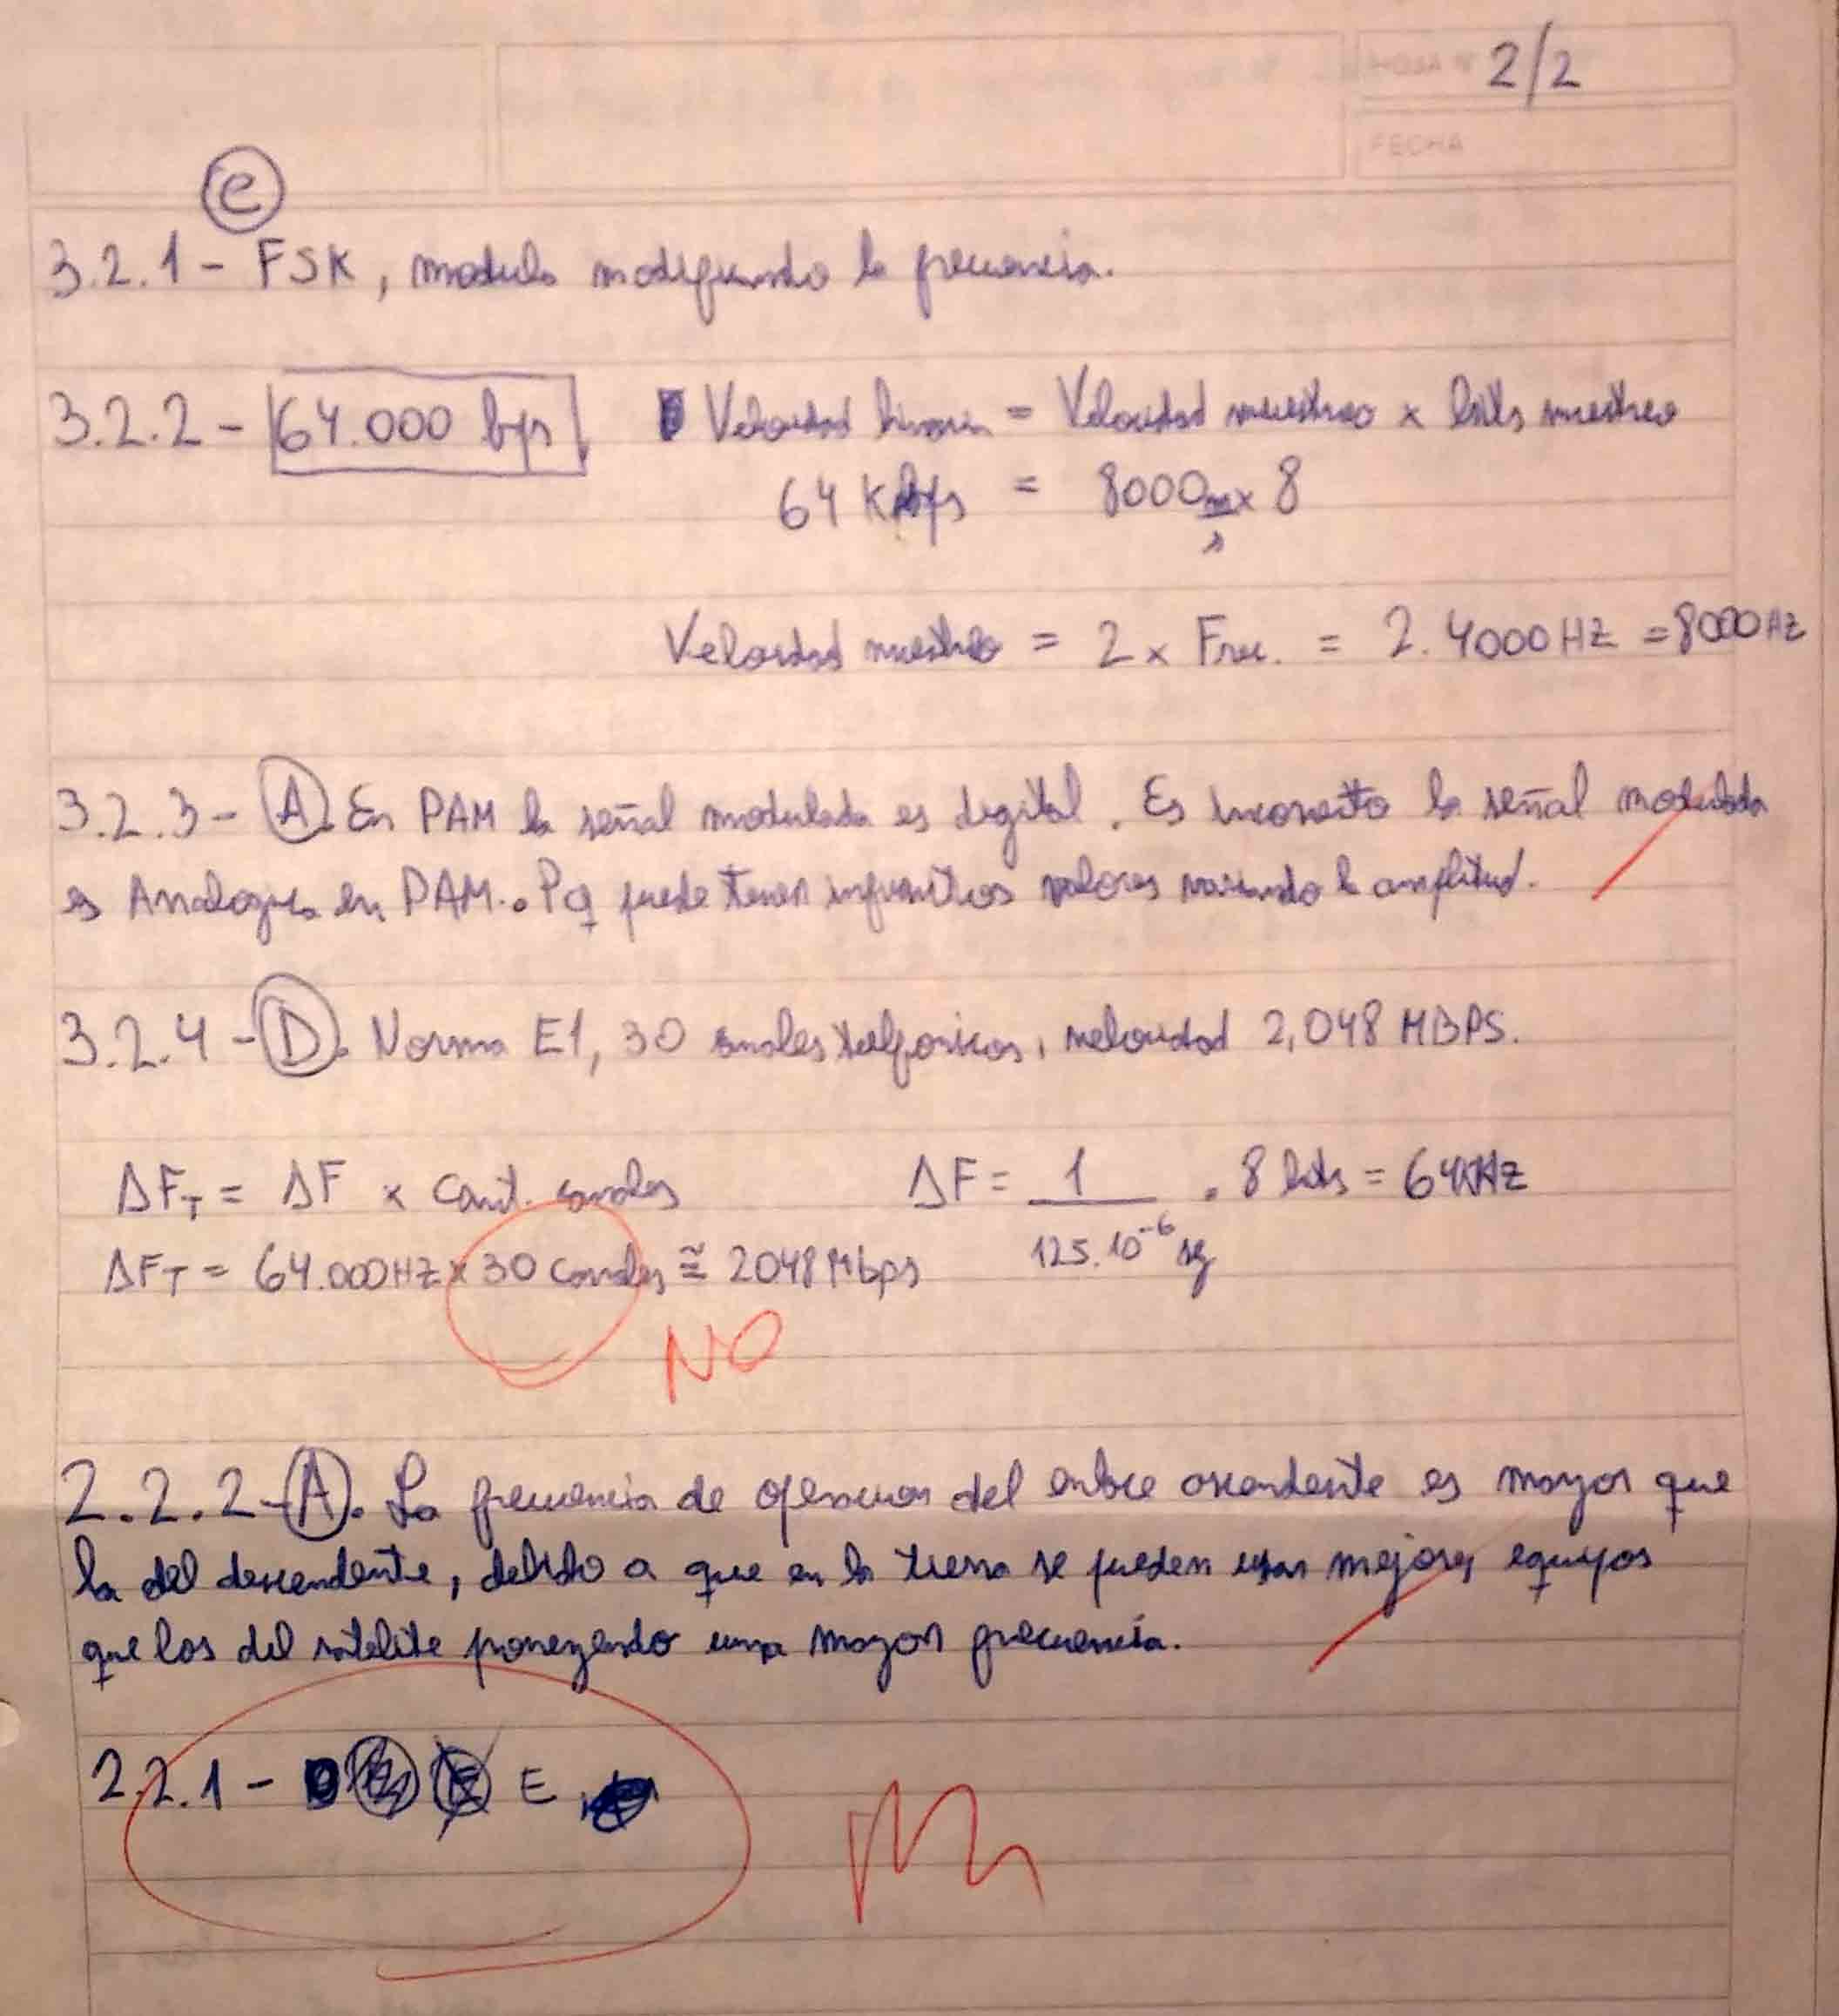 HOJA Nº 2/2
FECHA
e
3.2.1 - FSK, modula modificando la frecuencia.
3.2.2 - 64.000 bps Velocidad binaria = Velocidad muestreo x bits muestreo
64 Kbps = 8000 m/s x 8
Velocidad muestreo = 2 x Frec. = 2. 4000 HZ = 8000 HZ
3.2.3 - A. En PAM la señal modulada es digital. Es incorrecto la señal modulada
es Analogica en PAM. Pq puede tener infinitos valores variando la amplitud.
3.2.4 - D. Norma E1, 30 canales telefonicos, velocidad 2,048 MBPS.
ΔF_T = ΔF x cant. canales ΔF = 1 / 125.10^-6 sg . 8 bits = 64KHz
ΔF_T = 64.000HZ x 30 canales ≅ 2048 Mbps
NO
2.2.2 - A. La frecuencia de operacion del enlace ascendente es mayor que
la del descendente, debido a que en la tierra se pueden usar mejores equipos
que los del satelite poneyendo una mayor frecuencia.
2.2.1 - E